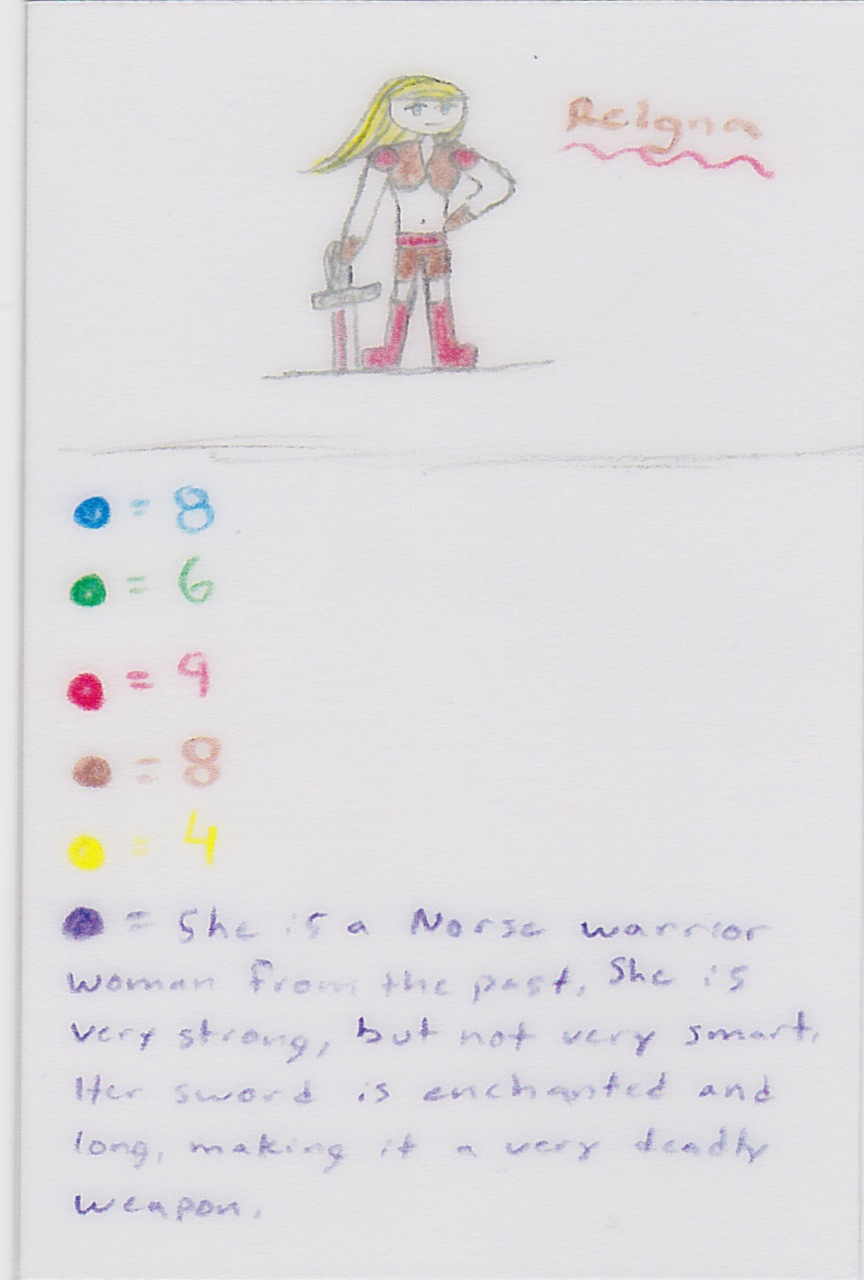 Reigna
= 8
= 6
= 9
= 8
= 4
= She is a Norse warrior
woman from the past. She is
very strong, but not very smart.
Her sword is enchanted and
long, making it a very deadly
weapon.